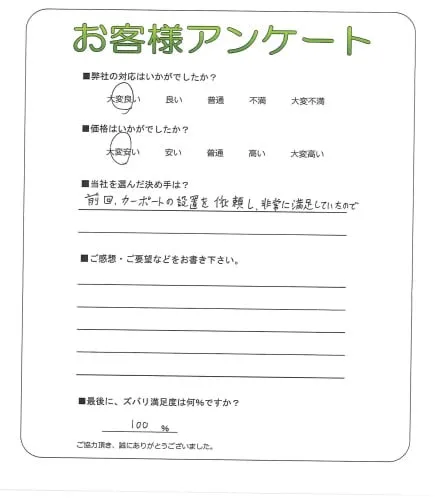 お客様アンケート
■弊社の対応はいかがでしたか？
大変良い 良い 普通 不満 大変不満
■価格はいかがでしたか？
大変安い 安い 普通 高い 大変高い
■当社を選んだ決め手は？
前回、カーポートの設置を依頼し、非常に満足していたので
■ご感想・ご要望などをお書き下さい。
■最後に、ズバリ満足度は何%ですか？
100 %
ご協力頂き、誠にありがとうございました。